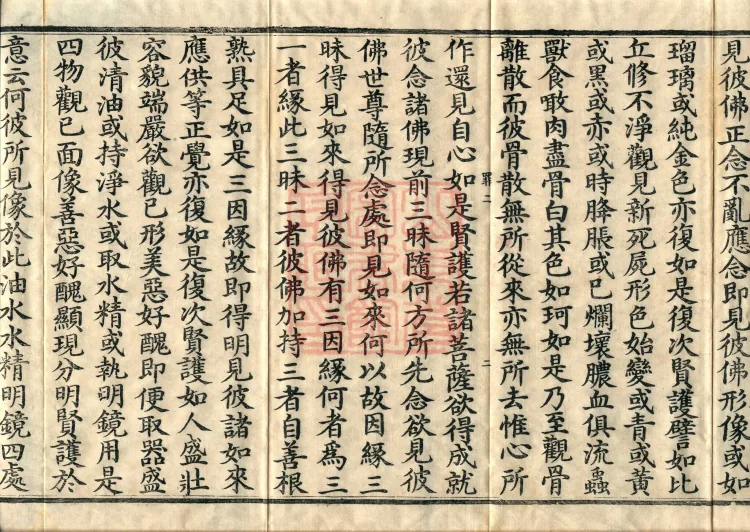 見彼佛正念不亂應念即見彼佛形像或如
瑠璃或純金色亦復如是復次賢護譬如比
丘修不淨觀見新死屍形色始變或青或黃
或黑或赤或時胮脹或已爛壞膿血俱流蟲
獸食噉肉盡骨白其色如珂如是乃至觀骨
離散而彼骨散無所從來亦無所去惟心所
作還見自心如是賢護若諸菩薩欲得成就
彼念諸佛現前三昧隨何方所先念欲見彼
佛世尊隨所念處即見如來何以故因緣三
昧得見如來得見彼佛有三因緣何者為三
一者緣此三昧二者彼佛加持三者自善根
熟具足如是三因緣故即得明見彼諸如來
應供等正覺亦復如是復次賢護如人盛壯
容貌端嚴欲觀已形美惡好醜即便取器盛
彼清油或持淨水或取水精或執明鏡用是
四物觀已面像善惡好醜顯現分明賢護於
意云何彼所見像於此油水水精明鏡四處